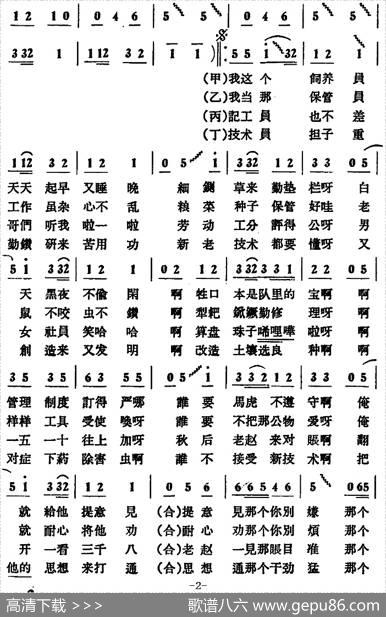 1 2 1 0 | 0 4 6 | 5 5 | 1 0 1 0 | 0 4 6 | 5 5
3 32 1 | 1 12 3 2 | 1 1 | 5 5 1 32 | 1 2 1
(甲)我这个 飼养員
(乙)我当那 保管員
(丙)記工員 也不差
(丁)技术員 担子重
1 12 3 2 | 1 2 1 2 | 0 5 1 | 3 32 1 2 | 1 2 1 2 | 0 5
天天起早 又睡晚 細鍘 草来勤垫 栏呀 白
工作虽杂 心不乱 粮菜 种子保管 好哇 老
哥們听我 啦一啦 劳动 工分評得 公呀 男
勤鑽研来 苦用功 新老 技术都要 懂呀 又
5 1 3 32 | 1 2 1 2 | 1 2 1 2 | 0 5 1
天黑夜 不偷閑 啊 牲口 本是队里的 宝啊 啊
鼠不咬 虫不鑽 啊 犁耙 鍁鐝勤修 理呀 啊
女社員 笑哈哈 啊 算盘 珠子唏哩嘩 啦呀 啊
創造来 又发明 啊 改造 土壤选良 种啊 啊
3 5 3 5 | 6 3 5 5 | 0 5 1 | 3 32 1 2 | 1 2 1 2 | 0 5
管理制度 訂得严哪 誰要 馬虎不遵 守啊 俺
样样工具 受使喚呀 誰要 不把那公物 爱呀 俺
一五一十 往上加呀 秋后 老赵来对 賬啊 翻
对症下葯 除害虫啊 誰不 接受新技 术啊 把
5 1 3 32 | 1 2 1 2 | 1 2 1 2 | 6 6 5 4 6 | 5 | 0 65
就給他 提意見 (合)提意 見那个你別 嫌 那个
就耐心 将他劝 (合)耐心 劝那个你別 煩 那个
开一看 三千八 (合)老赵 一見那賬目 准 那个
他的思想 来打通 (合)思想 通那个干劲 猛 那个
-2-
高清下载 >>> 歌谱八六 www.gepu86.com